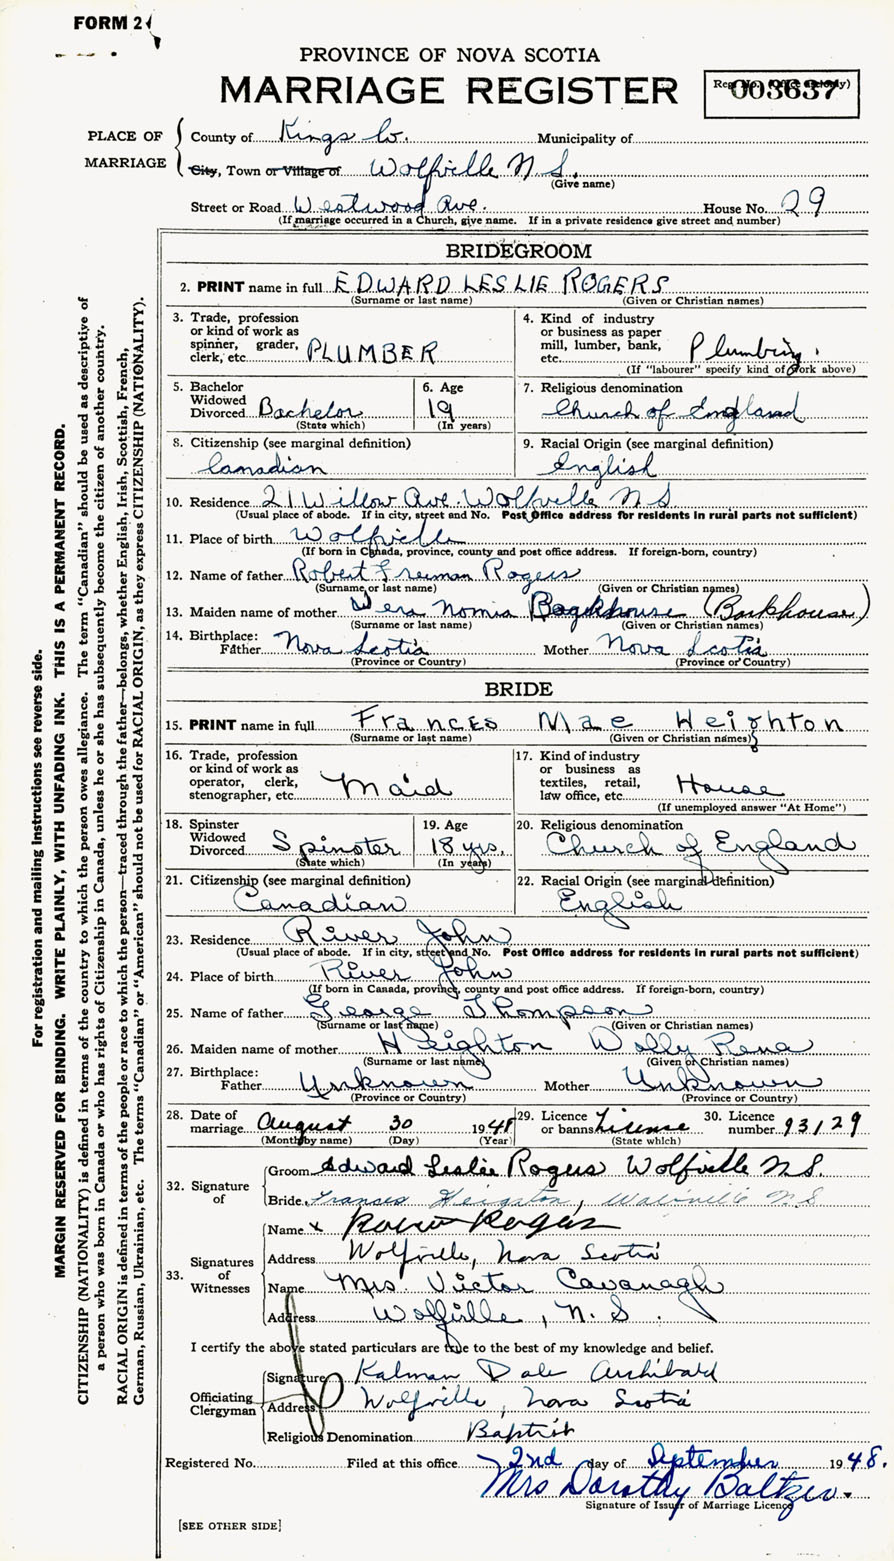 FORM 2
PROVINCE OF NOVA SCOTIA
MARRIAGE REGISTER
003637
PLACE OF MARRIAGE
County of Kings Co. Municipality of
City, Town or Village of Wolfville N.S.
(Give name)
Street or Road Westwood Ave. House No. 29
(If marriage occurred in a Church, give name. If in a private residence give street and number)
BRIDEGROOM
2. PRINT name in full EDWARD LESLIE ROGERS
(Surname or last name) (Given or Christian names)
3. Trade, profession or kind of work as spinner, grader, clerk, etc. PLUMBER
4. Kind of industry or business as paper mill, lumber, bank, etc. Plumbing.
(If "labourer" specify kind of work above)
5. Bachelor Widowed Divorced Bachelor
(State which)
6. Age 19
(In years)
7. Religious denomination
Church of England
8. Citizenship (see marginal definition)
Canadian
9. Racial Origin (see marginal definition)
English
10. Residence 21 Willow Ave. Wolfville N S
(Usual place of abode. If in city, street and No. Post Office address for residents in rural parts not sufficient)
11. Place of birth Wolfville
(If born in Canada, province, county and post office address. If foreign-born, country)
12. Name of father Robert Freeman Rogers
(Surname or last name) (Given or Christian names)
13. Maiden name of mother Vera Nomia (Backhouse)
(Surname or last name) (Given or Christian names)
14. Birthplace: Father Nova Scotia Mother Nova Scotia
(Province or Country) (Province or Country)
BRIDE
15. PRINT name in full Frances Mae Heighton
(Surname or last name) (Given or Christian names)
16. Trade, profession or kind of work as operator, clerk, stenographer, etc. Maid
17. Kind of industry or business as textiles, retail, law office, etc. House
(If unemployed answer "At Home")
18. Spinster Widowed Divorced Spinster
(State which)
19. Age 18 yrs.
(In years)
20. Religious denomination
Church of England
21. Citizenship (see marginal definition)
Canadian
22. Racial Origin (see marginal definition)
English
23. Residence River John
(Usual place of abode. If in city, street and No. Post Office address for residents in rural parts not sufficient)
24. Place of birth River John
(If born in Canada, province, county and post office address. If foreign-born, country)
25. Name of father George Thompson
(Surname or last name) (Given or Christian names)
26. Maiden name of mother Heighton Wolly Rena
(Surname or last name) (Given or Christian names)
27. Birthplace: Father Unknown Mother Unknown
(Province or Country) (Province or Country)
28. Date of marriage August 30 1948
(Month by name) (Day) (Year)
29. Licence or banns License
(State which)
30. Licence number 93129
32. Signature of
Groom Edward Leslie Rogers Wolfville N.S.
Bride Frances Heighton, Wolfville N S
33. Signatures of Witnesses
Name x Rogers
Address Wolfville, Nova Scotia
Name Mrs. Victor Cavanagh
Address Wolfville, N.S.
I certify the above stated particulars are true to the best of my knowledge and belief.
Officiating Clergyman
Signature Kalman Dale Archibald
Address Wolfville, Nova Scotia
Religious Denomination Baptist
Registered No. Filed at this office 2nd day of September 1948.
Mrs Dorothy Baltzer
Signature of Issuer of Marriage Licence
[SEE OTHER SIDE]
For registration and mailing instructions see reverse side.
MARGIN RESERVED FOR BINDING. WRITE PLAINLY, WITH UNFADING INK. THIS IS A PERMANENT RECORD.
CITIZENSHIP (NATIONALITY) is defined in terms of the country to which the person owes allegiance. The term "Canadian" should be used as descriptive of
a person who was born in Canada or who has rights of Citizenship in Canada, unless he or she has subsequently become the citizen of another country.
RACIAL ORIGIN is defined in terms of the people or race to which the person—traced through the father—belongs, whether English, Irish, Scottish, French,
German, Russian, Ukrainian, etc. The terms "Canadian" or "American" should not be used for RACIAL ORIGIN, as they express CITIZENSHIP (NATIONALITY).